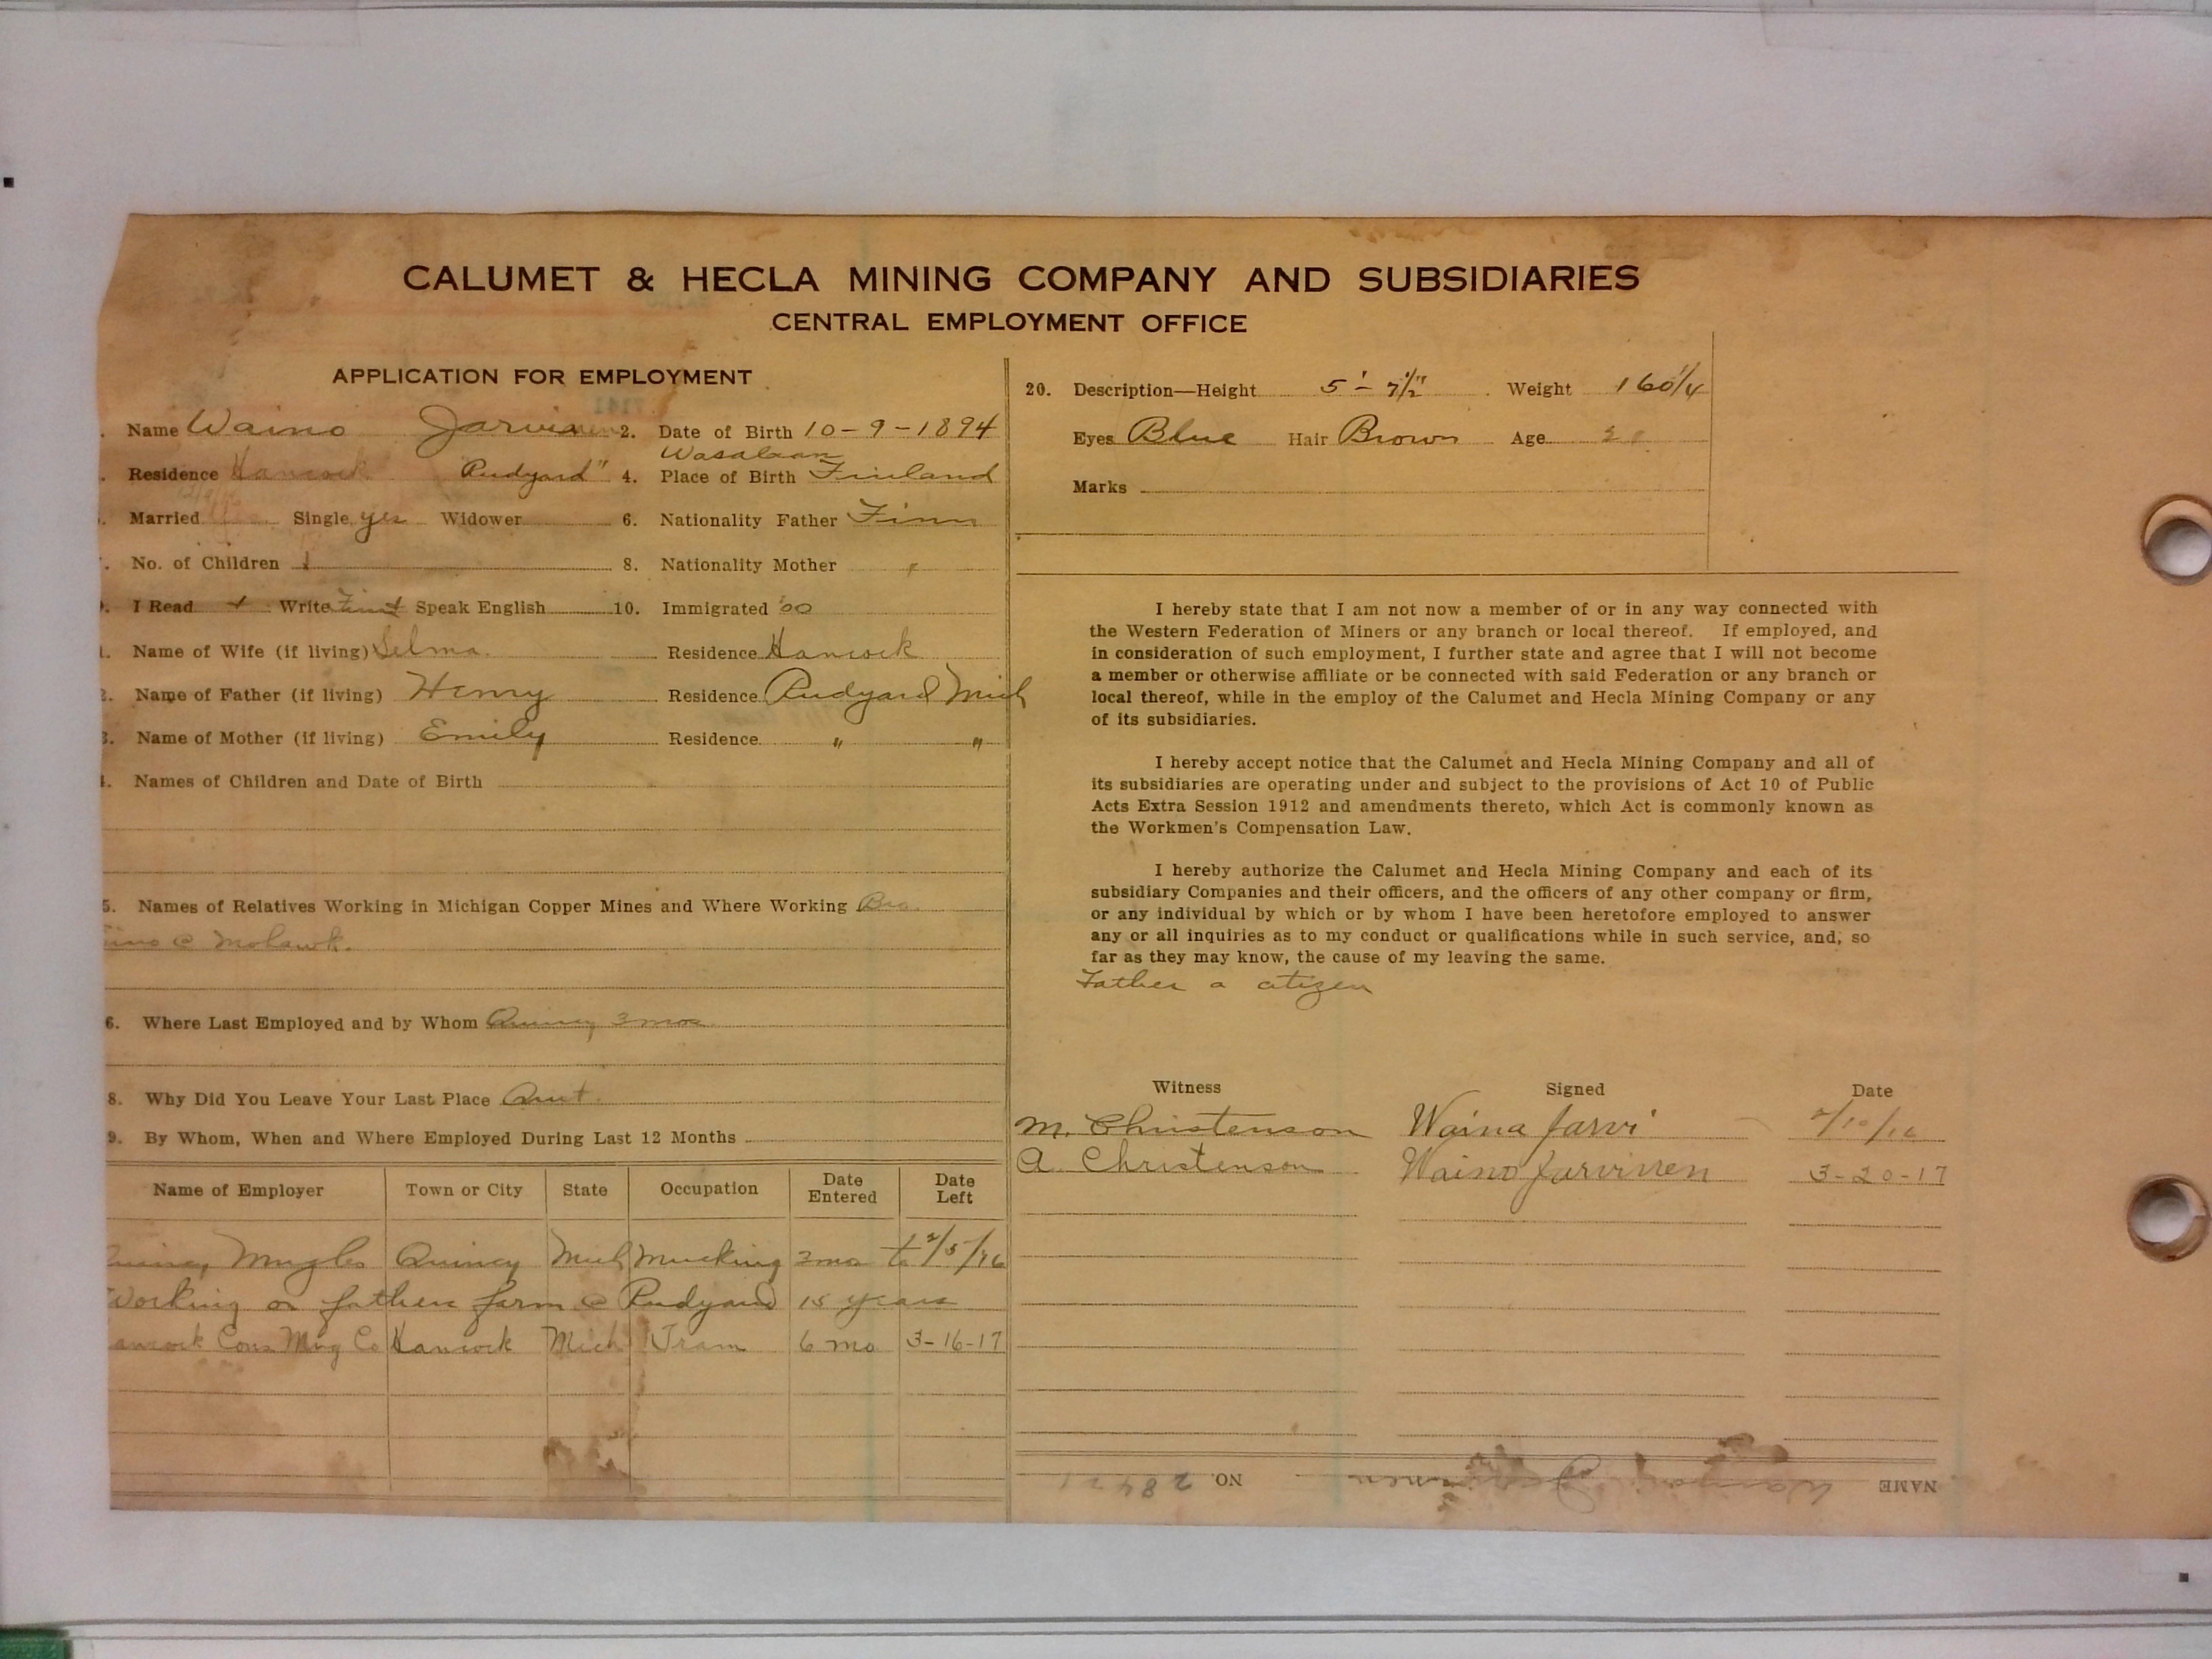 CALUMET & HECLA MINING COMPANY AND SUBSIDIARIES
CENTRAL EMPLOYMENT OFFICE
APPLICATION FOR EMPLOYMENT
Name Waino Jarvinen 2. Date of Birth 10-9-1894
Residence Hancock Rudyard" 4. Place of Birth Wasalaan Finland
Married Single yes Widower 6. Nationality Father Finn
No. of Children 1 8. Nationality Mother "
I Read + Write Finn + Speak English 10. Immigrated '00
Name of Wife (if living) Selma. Residence Hancock
Name of Father (if living) Henry Residence Rudyard Mich
Name of Mother (if living) Emily Residence " "
Names of Children and Date of Birth
5. Names of Relatives Working in Michigan Copper Mines and Where Working Bro.
@ Mohawk.
6. Where Last Employed and by Whom Quincy 3 mos
8. Why Did You Leave Your Last Place Quit.
9. By Whom, When and Where Employed During Last 12 Months
Name of Employer Town or City State Occupation Date Entered Date Left
Quincy Quincy Mich Mucking 3mo to 2/5/16
Working on fathers farm @ Rudyard 15 years
Hancock Cons Mng Co Hancock Mich Tram 6 mo 3-16-17
20. Description—Height 5'-7½" Weight 160¼
Eyes Blue Hair Brown Age 21
Marks
I hereby state that I am not now a member of or in any way connected with
the Western Federation of Miners or any branch or local thereof. If employed, and
in consideration of such employment, I further state and agree that I will not become
a member or otherwise affiliate or be connected with said Federation or any branch or
local thereof, while in the employ of the Calumet and Hecla Mining Company or any
of its subsidiaries.
I hereby accept notice that the Calumet and Hecla Mining Company and all of
its subsidiaries are operating under and subject to the provisions of Act 10 of Public
Acts Extra Session 1912 and amendments thereto, which Act is commonly known as
the Workmen's Compensation Law.
I hereby authorize the Calumet and Hecla Mining Company and each of its
subsidiary Companies and their officers, and the officers of any other company or firm,
or any individual by which or by whom I have been heretofore employed to answer
any or all inquiries as to my conduct or qualifications while in such service, and, so
far as they may know, the cause of my leaving the same.
Father a citizen
Witness Signed Date
M. Christenson Waina Jarvi 2/10/16
A. Christenson Waino Jarvinen 3-20-17
NAME Jarvinen NO. 28421